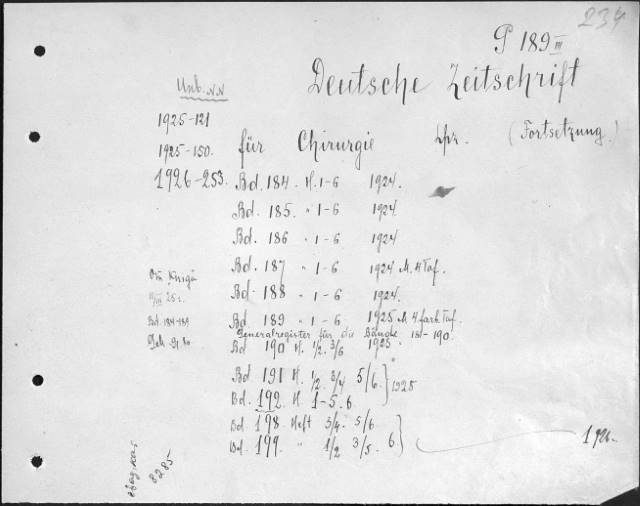 234
P 189 III
Deutsche Zeitschrift
für Chirurgie Lpz. (Fortsetzung.)
Bd. 184. H. 1-6 1924.
Bd. 185. " 1-6 1924
Bd. 186 " 1-6 1924
Bd. 187 " 1-6 1924 M. 4 Taf.
Bd. 188 " 1-6 1924.
Bd. 189 " 1-6 1925 M. 4 farb. Taf.
Generalregister für die Bände 181-190.
Bd 190 H. 1/2. 3/6 1925
Bd. 191 H. 1/2. 3/4 5/6. } 1925
Bd. 192. H. 1-5. 6
Bd. 198. Heft 3/4. 5/6
Bd. 199. " 1/2 3/5. 6. } 1926.
1925-121
1925-150.
1926-253.
25
Bd. 184-189
8285